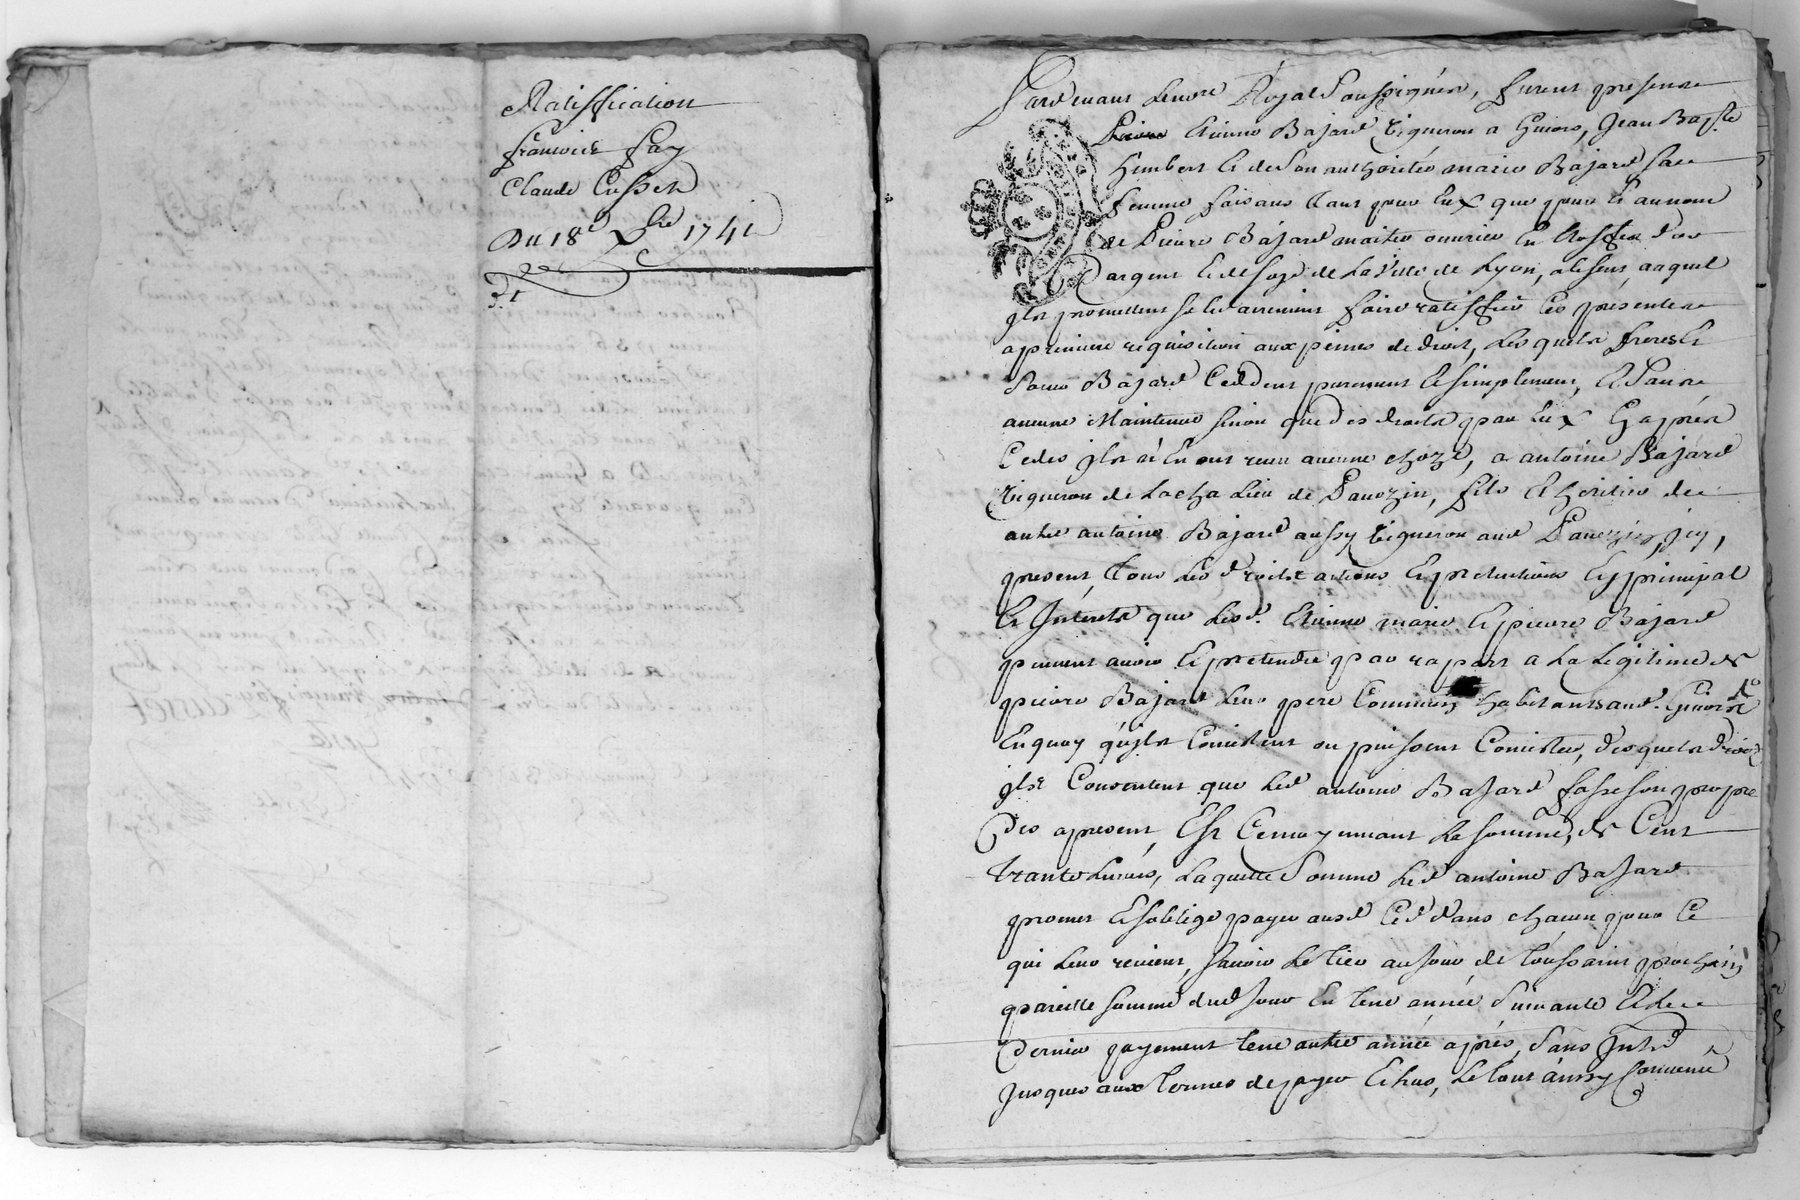 Ratiffication
françois fay
Claude Cusset
Du 18e Xbre 1741
Pardevant Lenore Royal Soussignés, furent presens
Etienne Bajard Vigneron a Givors, Jean Bapte
himbert et de son authorité marie Bajard sa
femme faisans tant pour Eux que pour et au nom
de Pierre Bajard maitre ouvrier En d'or
d'argent et de soye de La Ville de Lyon, absent, auquel
ils promettent faire ratiffier Ces presentes
a premiere requisition aux peines de droit, Lesquels freres et
Soeur Bajard Ceddent purement et simplement, et Sans
aucune Maintenue sinon que des droits par Eux Cy après
Cedés ils n'En ont receu aucune choze, a antoine Bajard
Vigneron de Lieu de Dauozin, fils et heritier de
autre antoine Bajard aussy Vigneron aud Dauozin, icy,
present, tous Les droits actions Et pretentions En principal
Et Interets que Lesd. Etienne marie et pierre Bajard
peuvent avoir et pretendre par raport a La Legitime de
pierre Bajard Leur pere Commun habitant aud. Givors
En quoy qu'ils Consistent ou puissent Consister, desquels droits
ils Consentent que Led antoine Bajard fasse son propre
Des apresent, Est Ce moyennant La somme, de Cent
trante Livres, Laquelle Somme Led antoine Bajard
promet et soblige payer ausd Ced dans chacun pour Ce
qui Leur revient, savoir Le tier au jour de toussaint prochain
pareille somme dud jour En une année Suivante et Le
Dernier payement une autre année après, Sans Intt
Jusques aux termes de payer Echus, Le tout aussy Convenu